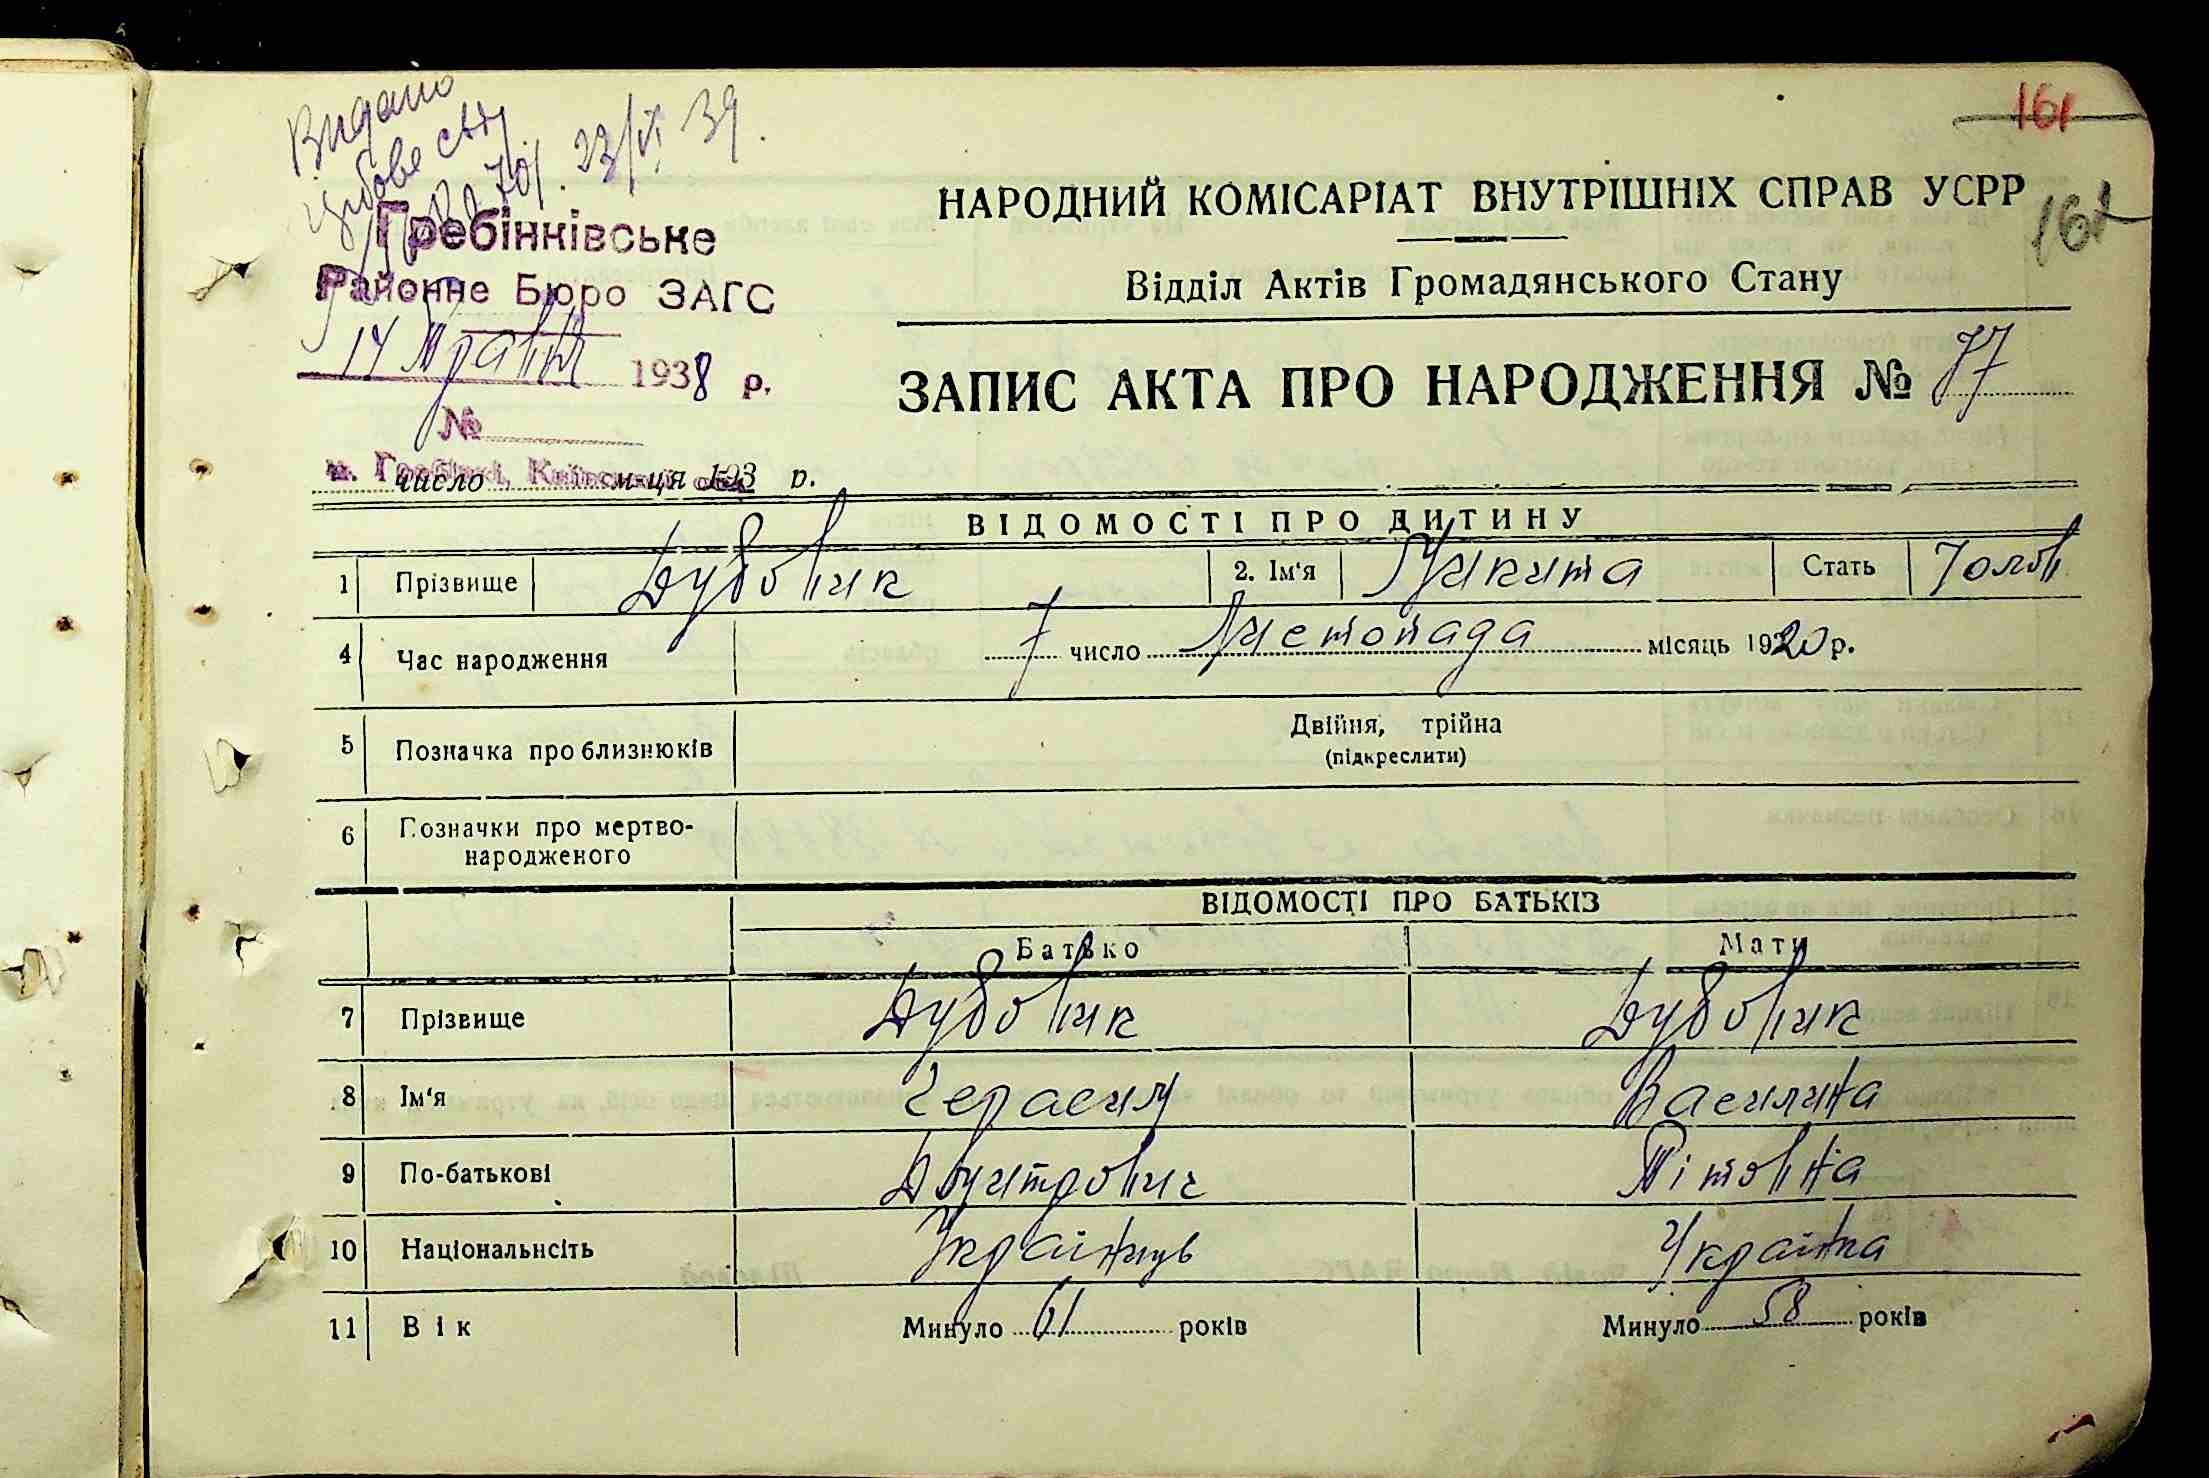 Видано
23/VI 39.
161
НАРОДНИЙ КОМІСАРІАТ ВНУТРІШНІХ СПРАВ УСРР
Гребінківське
Відділ Актів Громадянського Стану
Районне Бюро ЗАГС
14 Травня 1938 р.
ЗАПИС АКТА ПРО НАРОДЖЕННЯ № 77
№
м. Гребінкі, Київської обл.
число м-ця 193 р.
ВІДОМОСТІ ПРО ДИТИНУ
1 Прізвище Дубовик 2. Ім'я Микита Стать Чолов
4 Час народження 7 число Листопада місяць 1920 р.
5 Позначка про близнюків Двійня, трійна
(підкреслити)
6 Позначки про мертво-
народженого
ВІДОМОСТІ ПРО БАТЬКІЗ
Батько Мати
7 Прізвище Дубовик Дубовик
8 Ім'я Герасим Василина
9 По-батькові Дмитрович Тітовна
10 Національнсіть Українць Українка
11 Вік Минуло 61 років Минуло 58 років